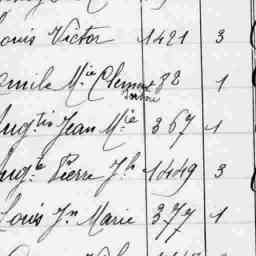 Louis Victor 1421 3
Emile Mie Clement 88 1
Augtin Jean Mie 367 1
Augte Pierre Jh 1449 3
Louis Jn Marie 377 1